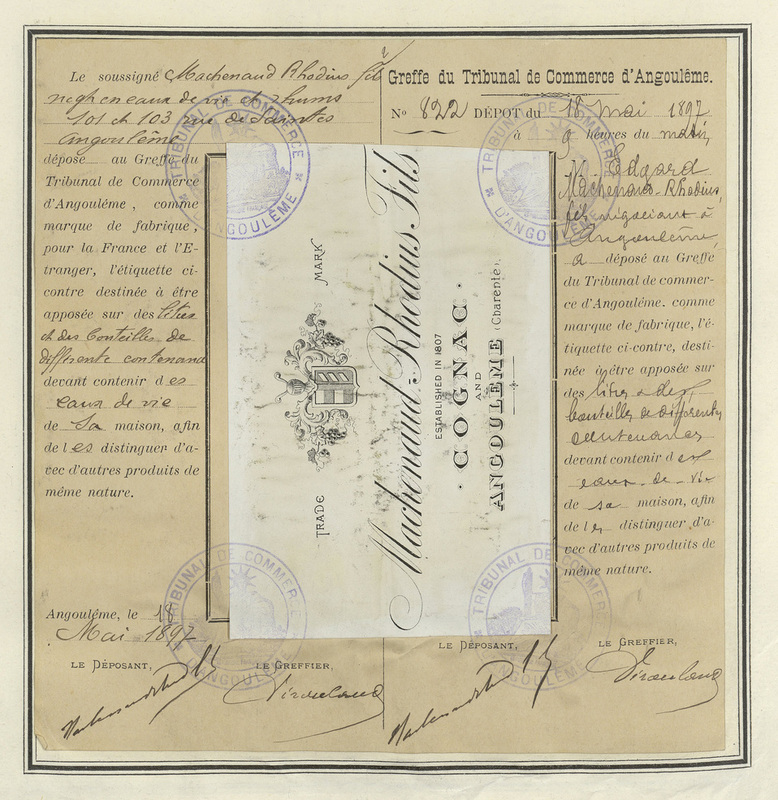 Le soussigné Machenaud Rhodius fils
101 et 103 rue de Saintes
Angoulême
dépose au Greffe du
Tribunal de Commerce
d'Angoulême, comme
marque de fabrique,
pour la France et l'E-
tranger, l'étiquette ci-
contre destinée à être
apposée sur des litres
et des bouteilles de
différente contenance
devant contenir des
eaux de vie
de sa maison, afin
de les distinguer d'a-
vec d'autres produits de
même nature.
Angoulême, le 18
Mai 1897
LE DÉPOSANT,
LE GREFFIER,
TRADE MARK
Machenaud-Rhodius Fils
ESTABLISHED IN 1807
COGNAC
AND
ANGOULÊME (Charente).
Greffe du Tribunal de Commerce d'Angoulême.
No 822 DÉPOT du 18 Mai 1897
à 9 heures du matin
M. Edgard
Machenaud-Rhodius,
fils négociant à
Angoulême,
a déposé au Greffe
du Tribunal de commer-
ce d'Angoulême. comme
marque de fabrique, l'é-
tiquette ci-contre, desti-
née à être apposée sur
des litres & des
bouteilles de différentes
contenances
devant contenir des
eaux-de-vie
de sa maison, afin
de les distinguer d'a-
vec d'autres produits de
même nature.
LE DÉPOSANT,
LE GREFFIER,
TRIBUNAL DE COMMERCE
D'ANGOULÊME
TRIBUNAL DE COMMERCE
D'ANGOULÊME
TRIBUNAL DE COMMERCE
D'ANGOULÊME
TRIBUNAL DE COMMERCE
D'ANGOULÊME